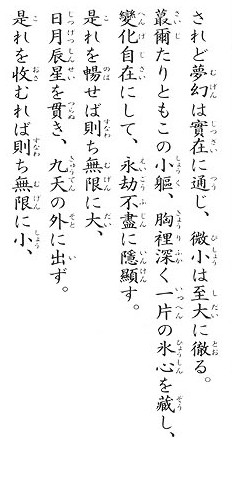 されど夢幻は實在に通じ、微小は至大に徹る。
蕞爾たりともこの小軀、胸裡深く一片の氷心を藏し、
變化自在にして、永劫不盡に隱顯す。
是れを暢せば則ち無限に大、
日月辰星を貫き、九天の外に出ず。
是れを收むれば則ち無限に小、